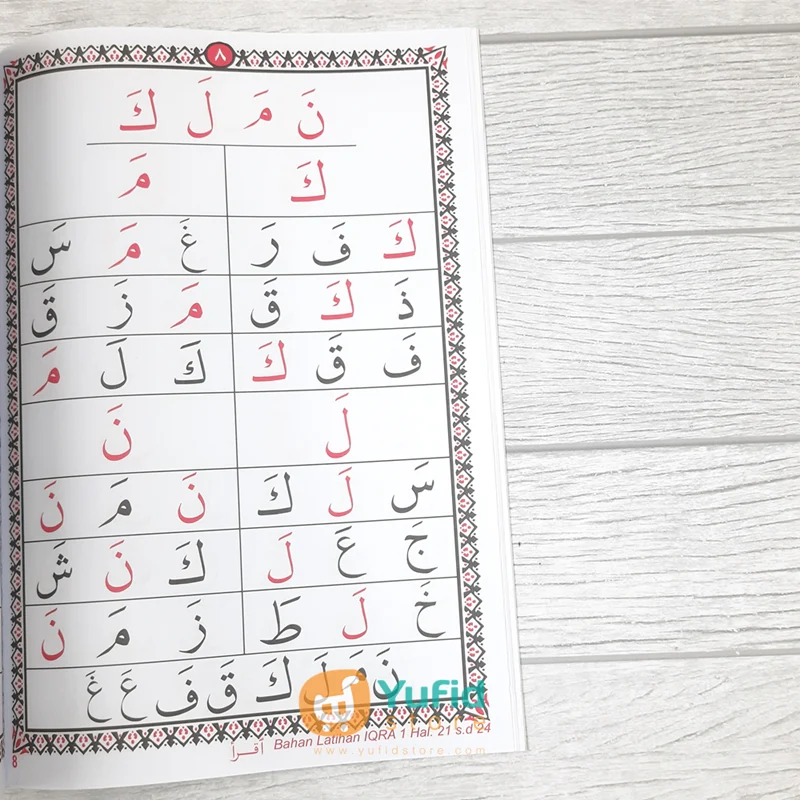 ٨
نَ مَ لَ كَ
كَ مَ
كَ فَ رَ غَ مَ سَ
ذَ كَ قَ مَ زَ قَ
فَ قَ كَ كَ لَ مَ
لَ نَ
سَ لَ كَ نَ مَ نَ
جَ عَ لَ كَ نَ شَ
خَ لَ طَ زَ مَ نَ
نَ مَ لَ كَ قَ فَ عَ غَ
Yufid
store
اقرأ Bahan Latihan IQRA 1 Hal. 21 s.d 24
www.yufidstore.com
8